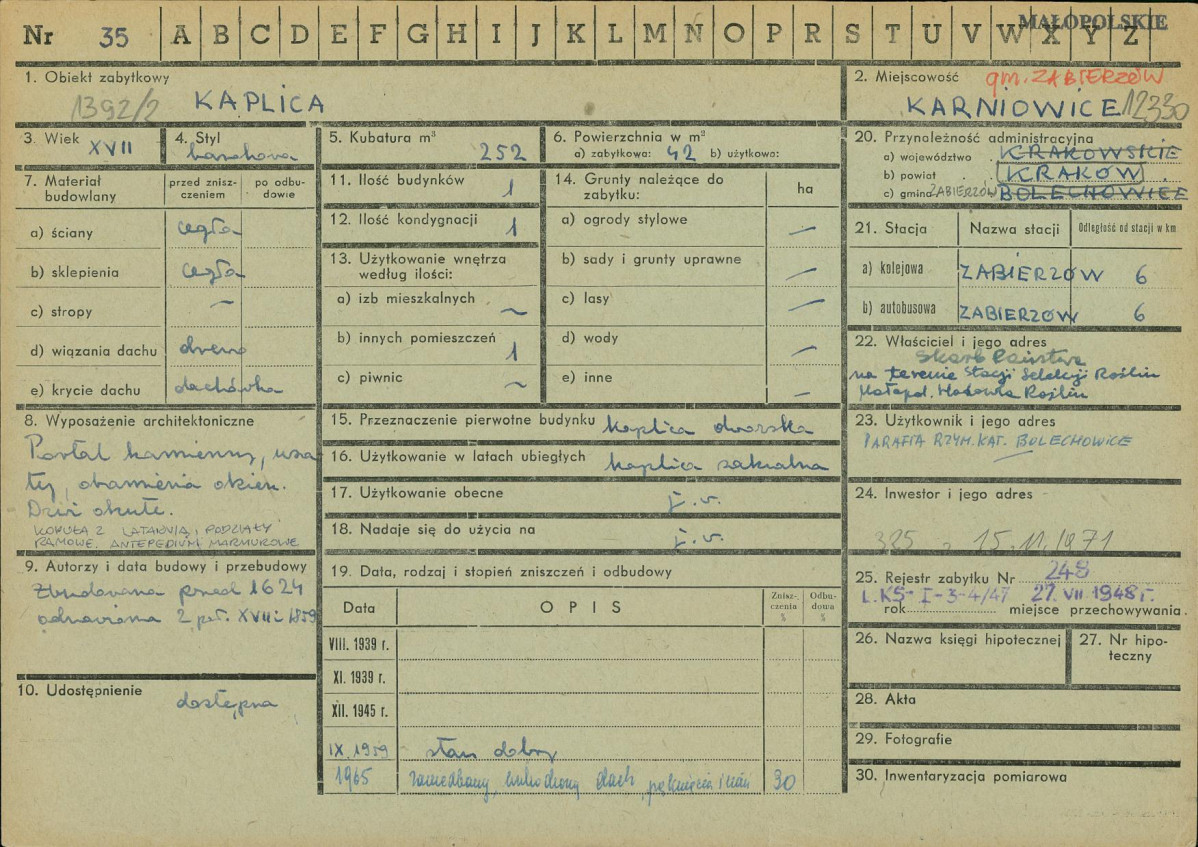 Nr 35 A B C D E F G H I J K L M N O P R S T U V W X Y Z
MAŁOPOLSKIE
1. Obiekt zabytkowy
1392/2 KAPLICA
2. Miejscowość gm. ZABIERZÓW
KARNIOWICE 12330
3. Wiek XVII
4. Styl
barokowa
5. Kubatura m³
252
6. Powierzchnia w m²
a) zabytkowa: 42 b) użytkowa:
7. Materiał budowlany
przed zniszczeniem
po odbudowie
a) ściany cegła
b) sklepienia cegła
c) stropy —
d) wiązania dachu drewno
e) krycie dachu dachówka
8. Wyposażenie architektoniczne
Portal kamienny, usza
ty, obramienia okien.
Drzwi okute.
KOPUŁA Z LATARNIĄ, PODZIAŁY
RAMOWE. ANTEPEDIUM MARMUROWE
9. Autorzy i data budowy i przebudowy
Zbudowana przed 1624
odnowiona 2 poł. XVII i 1859
10. Udostępnienie
dostępna
11. Ilość budynków 1
12. Ilość kondygnacji 1
13. Użytkowanie wnętrza
według ilości:
a) izb mieszkalnych ~
b) innych pomieszczeń 1
c) piwnic ~
14. Grunty należące do
zabytku: ha
a) ogrody stylowe —
b) sady i grunty uprawne —
c) lasy —
d) wody —
e) inne —
15. Przeznaczenie pierwotne budynku kaplica dworska
16. Użytkowanie w latach ubiegłych kaplica sakralna
17. Użytkowanie obecne j.w.
18. Nadaje się do użycia na j.w.
19. Data, rodzaj i stopień zniszczeń i odbudowy
Data OPIS Zniszczenia % Odbudowa %
VIII. 1939 r.
XI. 1939 r.
XII. 1945 r.
IX. 1959 stan dobry
1965 zaniedbany, uszkodzony dach, pęknięcia ścian 30
20. Przynależność administracyjna
a) województwo KRAKOWSKIE
b) powiat KRAKÓW
c) gmina ZABIERZÓW BOLECHOWICE
21. Stacja Nazwa stacji Odległość od stacji w km
a) kolejowa ZABIERZÓW 6
b) autobusowa ZABIERZÓW 6
22. Właściciel i jego adres
Skarb Państwa
na terenie Stacji Selekcji Roślin
Małopol. Hodowla Roślin
23. Użytkownik i jego adres
PARAFIA RZYM. KAT. BOLECHOWICE
24. Inwestor i jego adres
325 15.11.1971
25. Rejestr zabytku Nr 248
L.KS-I-3-4/47 27. VII. 1948 r.
rok miejsce przechowywania.
26. Nazwa księgi hipotecznej
27. Nr hipoteczny
28. Akta
29. Fotografie
30. Inwentaryzacja pomiarowa